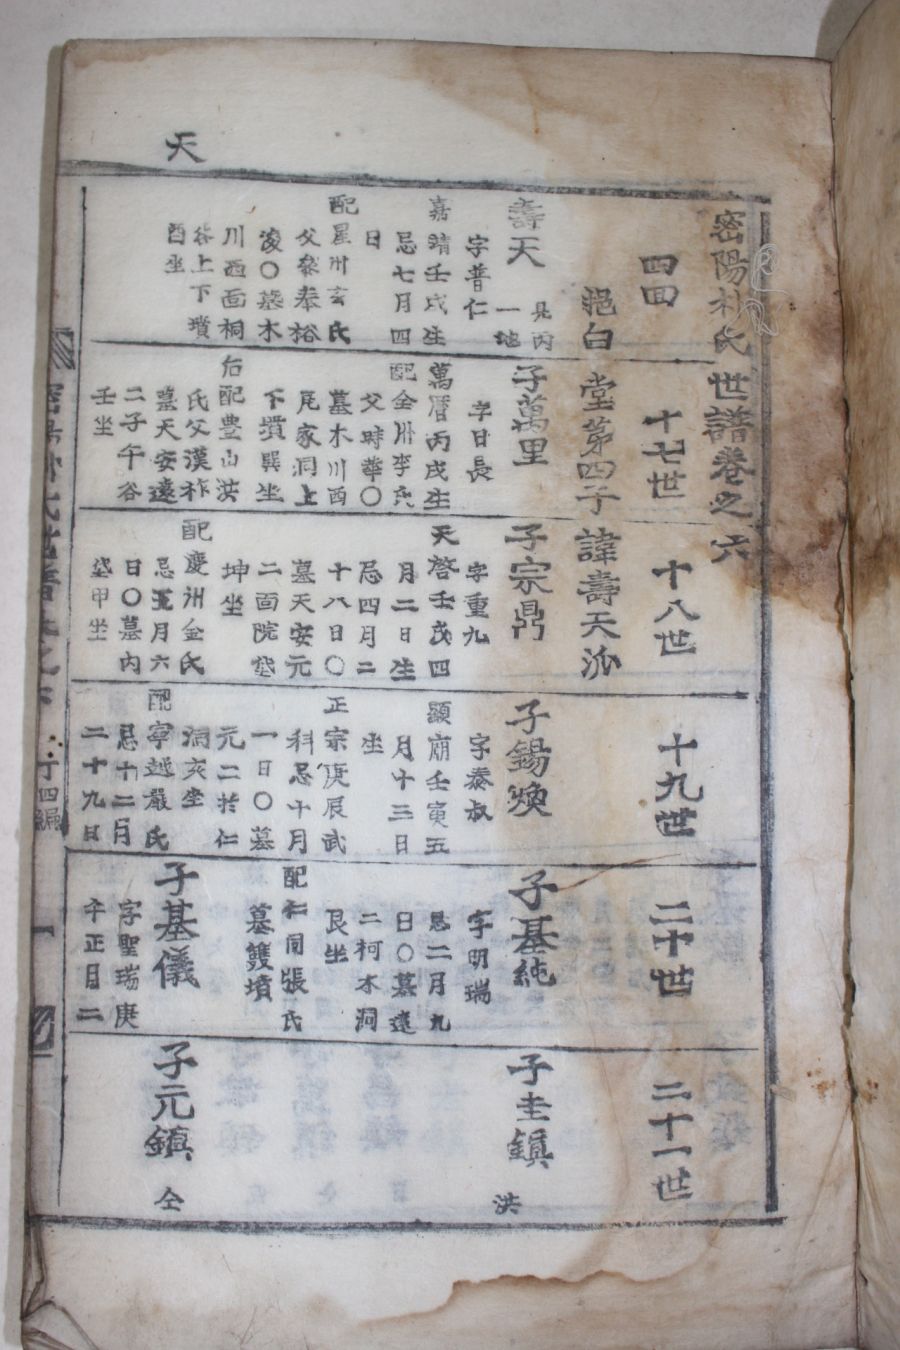 天
密陽朴氏世譜卷之六
四 十七世 十八世 十九世 二十世 二十一世
挹白堂第四子諱壽天派
壽天
字普仁
嘉靖壬戌生
忌七月四
日
配星州玄氏
父參奉裕
浚〇墓木
川西面桐
谷上下墳
酉坐
子萬里
字日長
萬曆丙戌生
配全州李氏
父時華〇
墓木川西
尾家洞上
下墳巽坐
后配豊山洪
氏父漢祚
墓天安遠
二子午谷
壬坐
子宗鼎
字重九
天啓壬戌四
月二日生
忌四月二
十八日〇
墓天安元
二面院垈
坤坐
配慶州金氏
忌五月六
日〇墓內
垈甲坐
子錫煥
字泰叔
顯廟壬寅五
月十三日
坐
正宗庚辰武
科忌十月
一日〇墓
元二於仁
洞亥坐
配寧越嚴氏
忌十二月
二十九日
子基純
字明瑞
忌二月九
日〇墓遠
二柯木洞
艮坐
配仁同張氏
墓雙墳
子基儀
字聖瑞庚
午正月二
子圭鎭
洪
子元鎭
仝